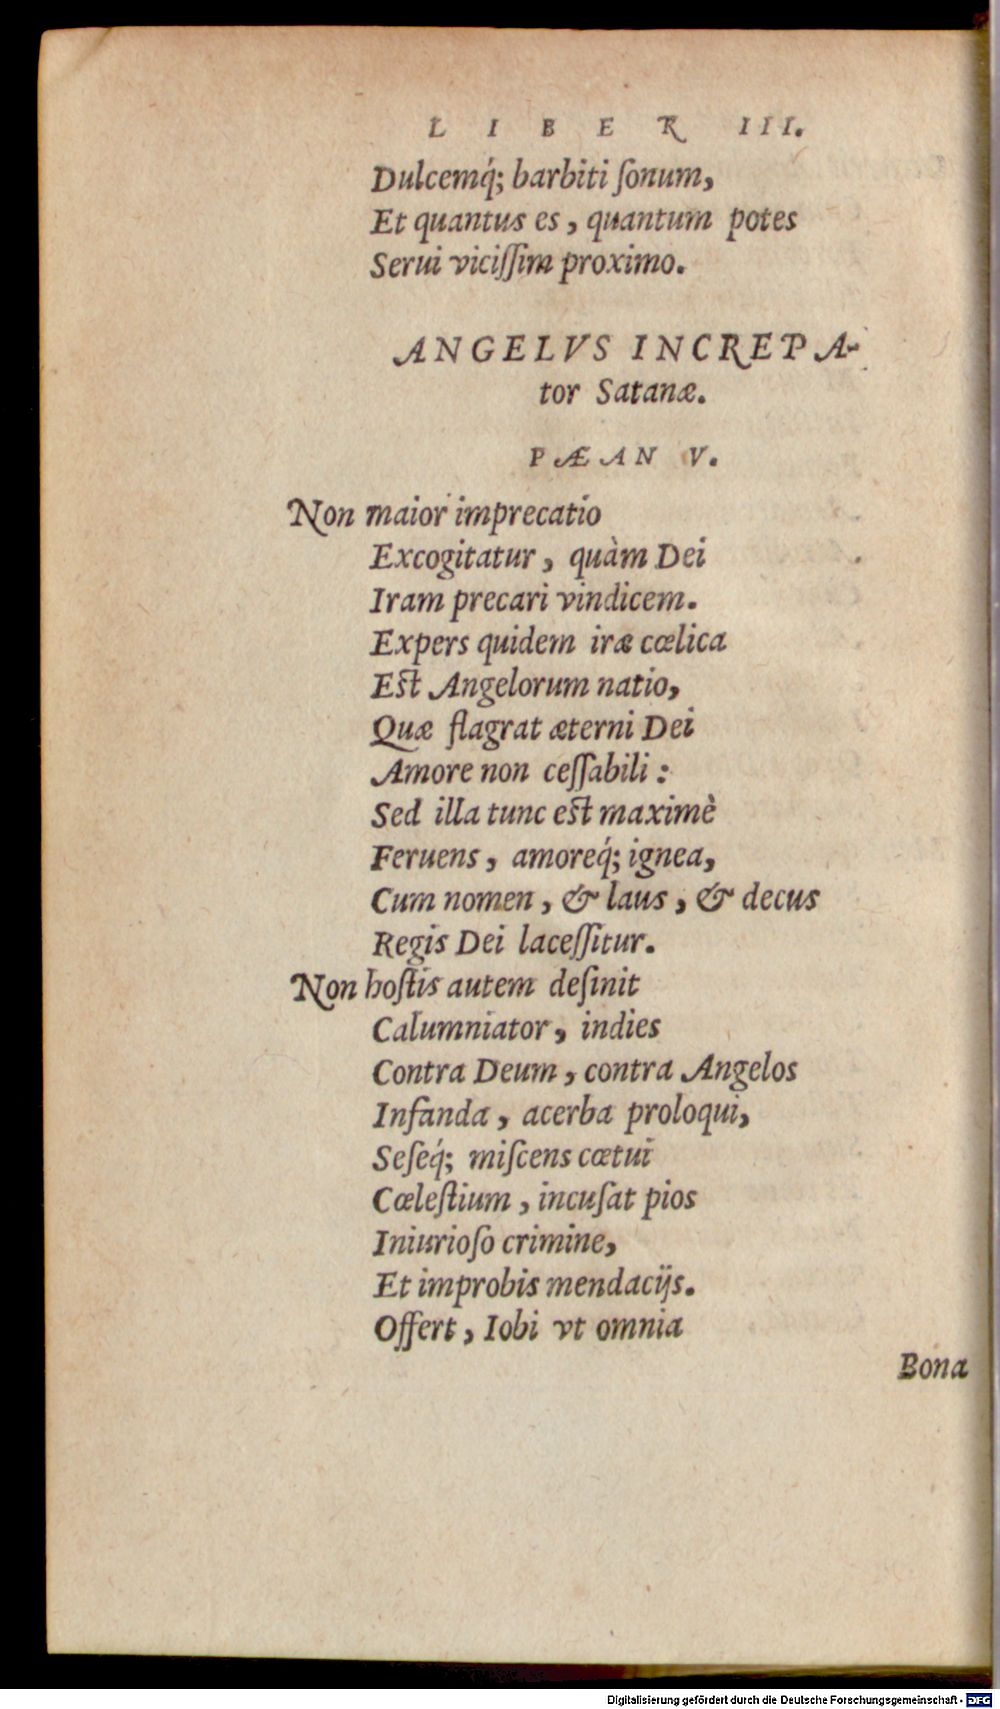 LIBER III.
Dulcemq́; barbiti ſonum,
Et quantus es, quantum potes
Serui viciſſim proximo.
ANGELVS INCREPA-
tor Satanæ.
PÆAN V.
Non maior imprecatio
Excogitatur, quàm Dei
Iram precari vindicem.
Expers quidem iræ cœlica
Eſt Angelorum natio,
Quæ flagrat æterni Dei
Amore non ceſſabili:
Sed illa tunc eſt maximè
Feruens, amoreq́; ignea,
Cum nomen, & laus, & decus
Regis Dei laceſſitur.
Non hoſtis autem deſinit
Calumniator, indies
Contra Deum, contra Angelos
Infanda, acerba proloqui,
Seſeq́; miſcens cœtui
Cœleſtium, incuſat pios
Iniurioſo crimine,
Et improbis mendacijs.
Offert, Iobi vt omnia
Bona
Digitalisierung gefördert durch die Deutsche Forschungsgemeinschaft - DFG